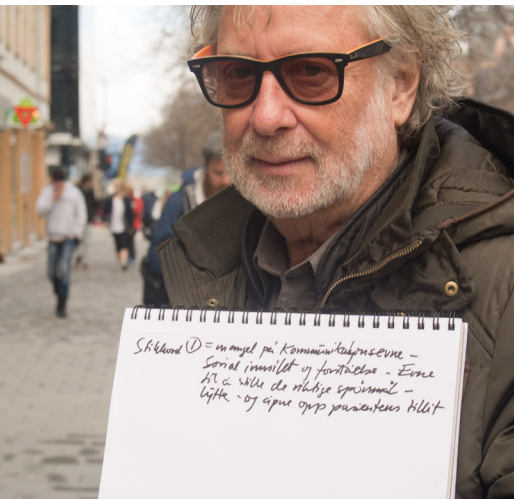 Stikkord 1 = mangel på kommunikasjonsevne -
Sosial innsikt og forståelse - Evne
til å stille de riktige spørsmål -
lytte - og åpne opp pasientens tillit